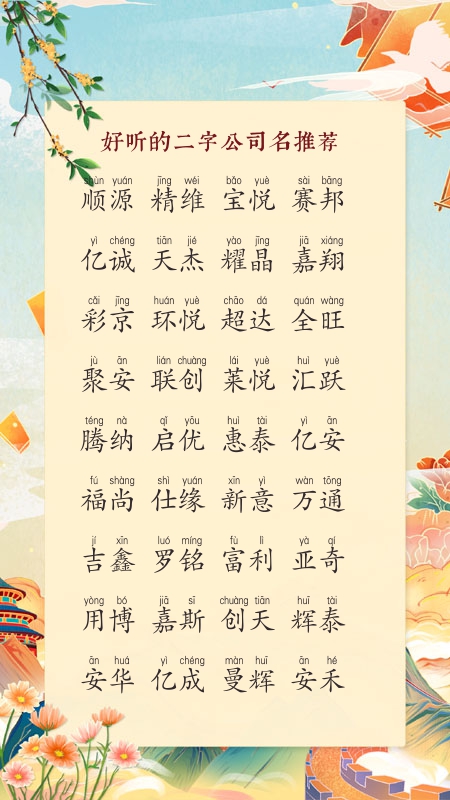 好听的二字公司名推荐
shùn yuán jīng wéi bǎo yuè sài bāng
顺源 精维 宝悦 赛邦
yì chéng tiān jié yào jīng jiā xiáng
亿诚 天杰 耀晶 嘉翔
cǎi jīng huán yuè chāo dá quán wàng
彩京 环悦 超达 全旺
jù ān lián chuàng lái yuè huì yuè
聚安 联创 莱悦 汇跃
téng nà qǐ yōu huì tài yì ān
腾纳 启优 惠泰 亿安
fú shàng shì yuán xīn yì wàn tōng
福尚 仕缘 新意 万通
jí xīn luó míng fù lì yà qí
吉鑫 罗铭 富利 亚奇
yòng bó jiā sī chuàng tiān huī tài
用博 嘉斯 创天 辉泰
ān huá yì chéng màn huī ān hé
安华 亿成 曼辉 安禾